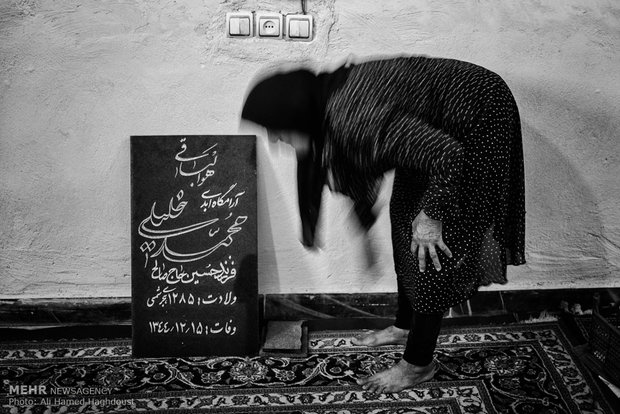 هوالباقی
آرامگاه ابدی
محمد خلیلی
فرزند حسین حاج صالح
ولادت: ۱۲۸۵ هجری شمسی
وفات: ۱۳۴۴٫۱۲٫۱۵
MEHR NEWSAGENCY
Photo: Ali Hamed Haghdoust